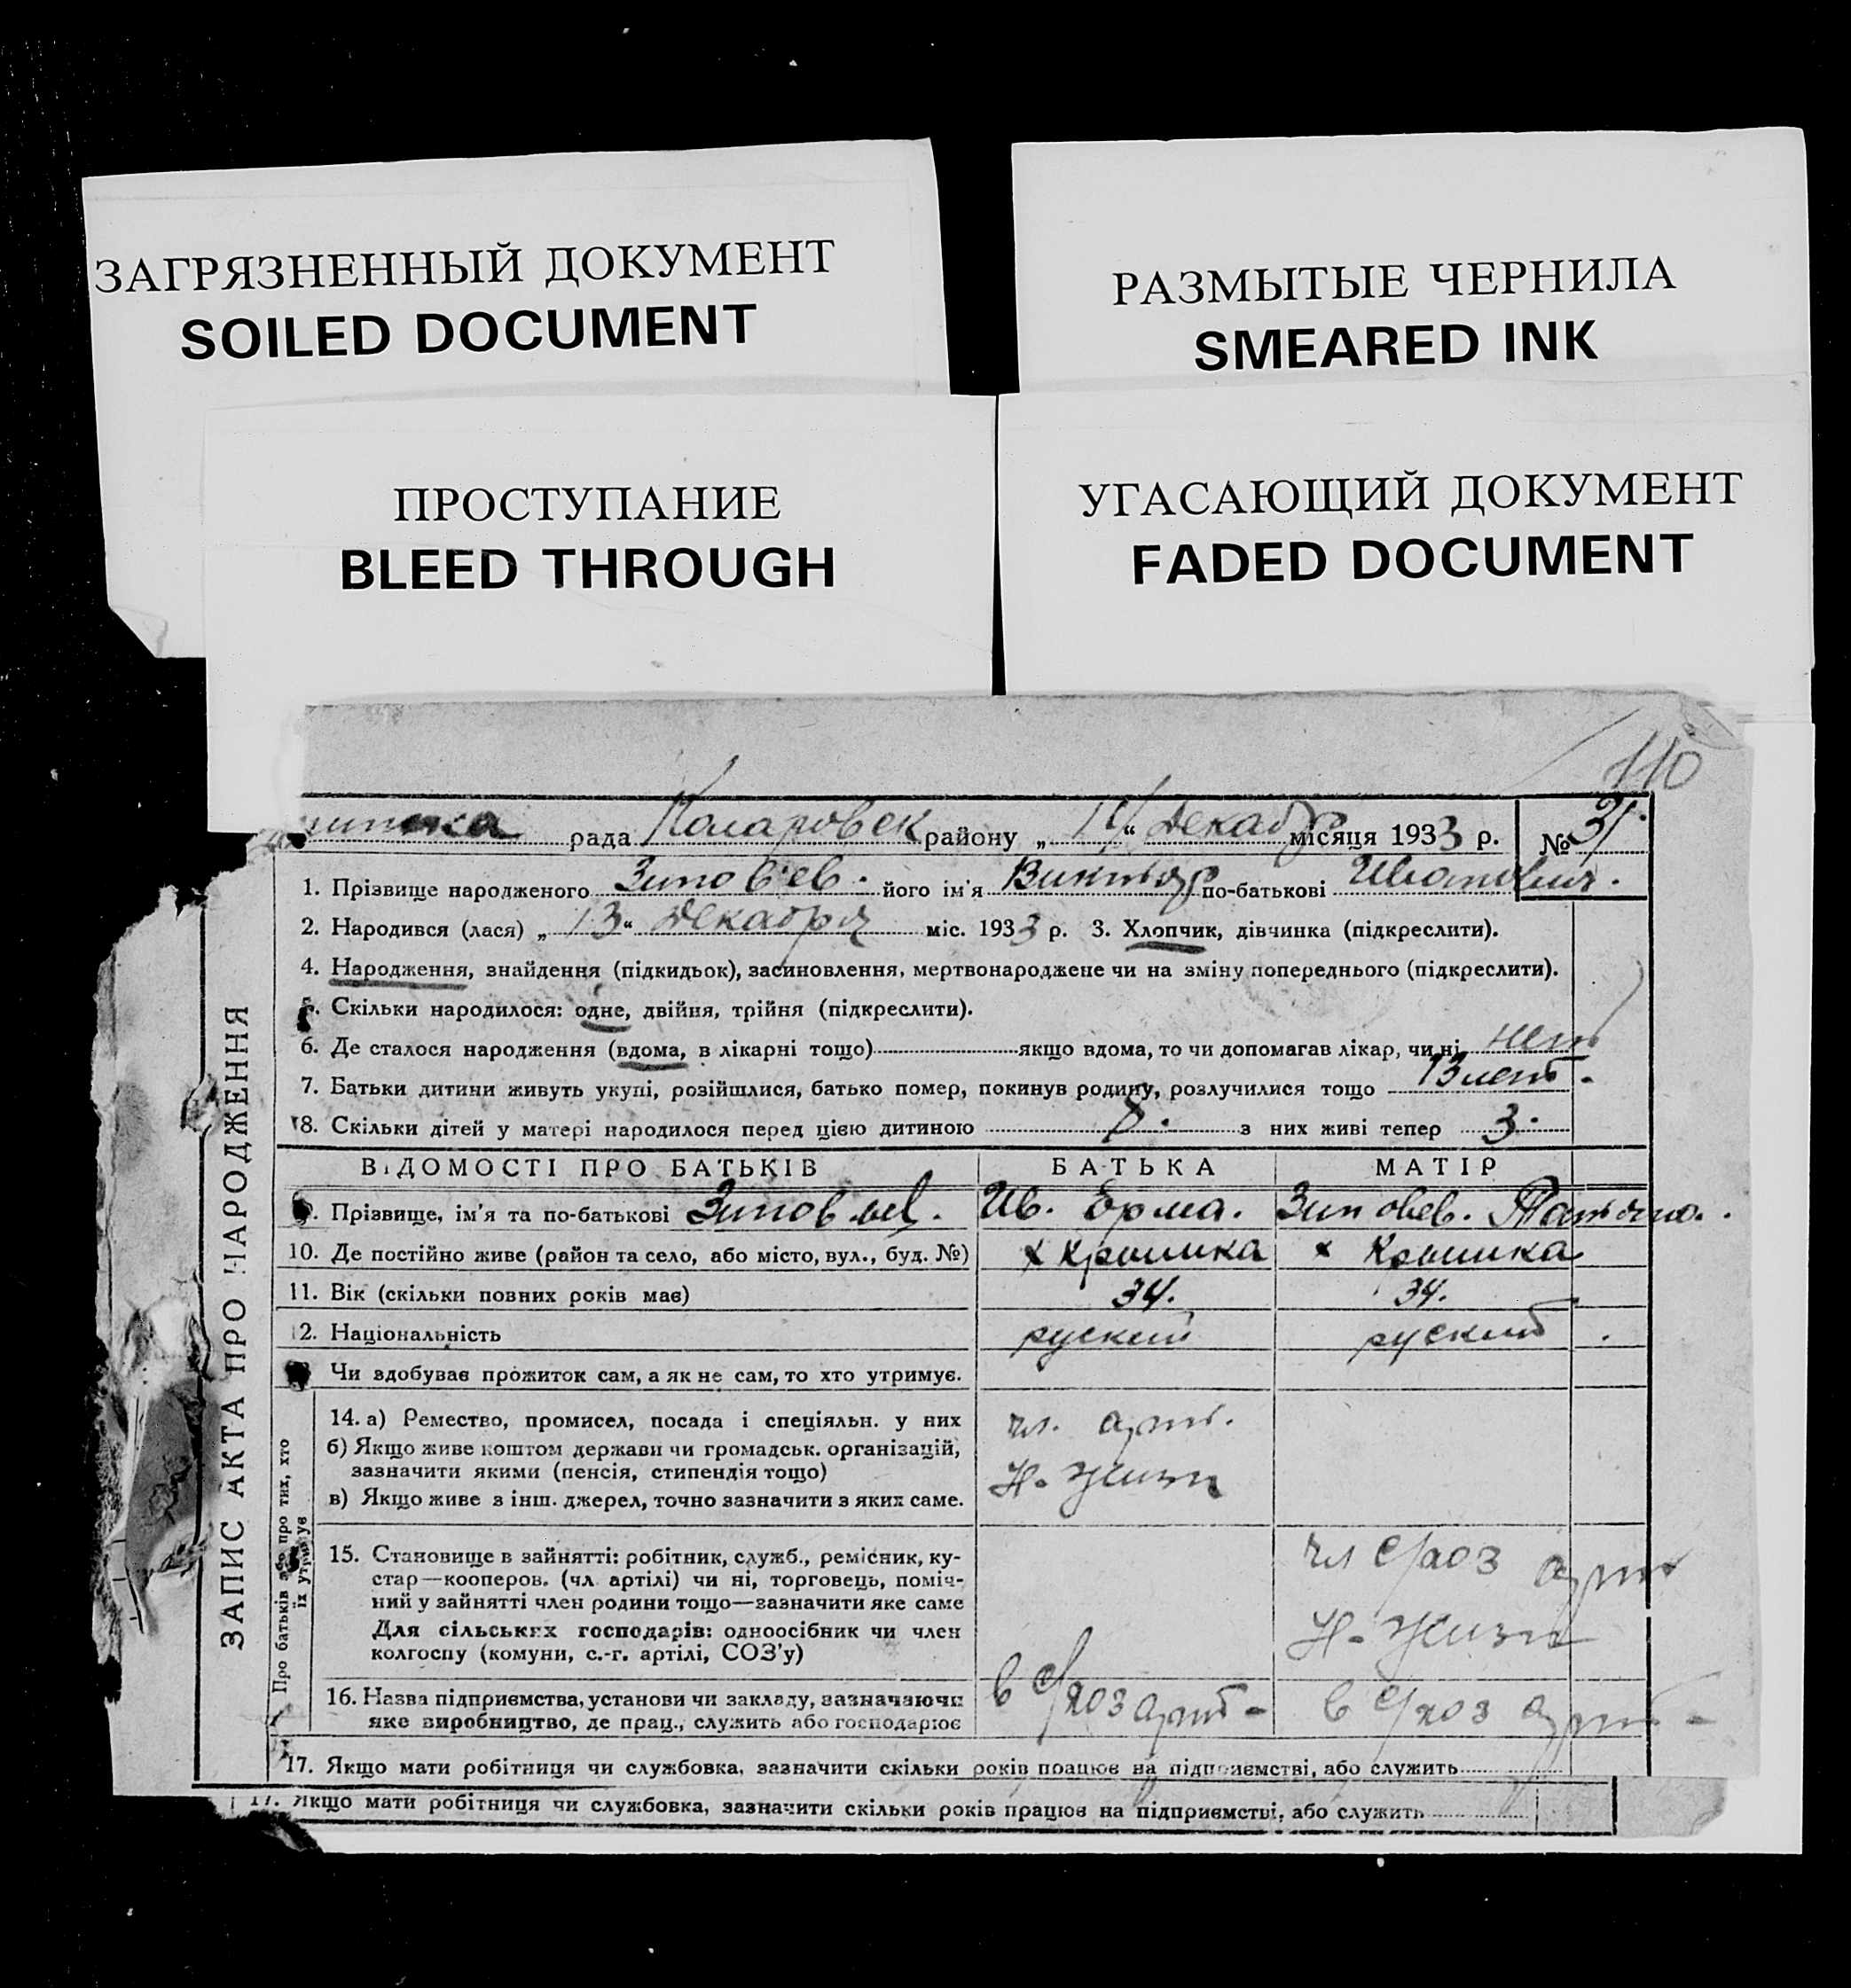 ЗАГРЯЗНЕННЫЙ ДОКУМЕНТ
SOILED DOCUMENT
РАЗМЫТЫЕ ЧЕРНИЛА
SMEARED INK
ПРОСТУПАНИЕ
BLEED THROUGH
УГАСАЮЩИЙ ДОКУМЕНТ
FADED DOCUMENT
110
рада Коларовск району „14“ декабр місяця 1933 р. № 31.
ЗАПИС АКТА ПРО НАРОДЖЕННЯ
1. Прізвище народженого Зинов'ев. його ім'я Виктор по-батькові Иванович.
2. Народився (лася) „13“ декабря міс. 1933 р. 3. Хлопчик, дівчинка (підкреслити).
4. Народження, знайдення (підкидьок), засиновлення, мертвонароджене чи на зміну попереднього (підкреслити).
5. Скільки народилося: одне, двійня, трійня (підкреслити).
6. Де сталося народження (вдома, в лікарні тощо) якщо вдома, то чи допомагав лікар, чи ні нет
7. Батьки дитини живуть укупі, розійшлися, батько помер, покинув родину, розлучилися тощо 13 лет.
8. Скільки дітей у матері народилося перед цією дитиною з них живі тепер 3.
ВІДОМОСТІ ПРО БАТЬКІВ БАТЬКА МАТІР
9. Прізвище, ім'я та по-батькові Зиновьев. Ив. Ерма. Зиновев. Татьяна.
10. Де постійно живе (район та село, або місто, вул., буд. №) х Криника х Криника
11. Вік (скільки повних років має) 34. 34.
12. Національність руский руский
Чи здобуває прожиток сам, а як не сам, то хто утримує.
Про батьків або про тих, хто
їх утримує
14. а) Ремество, промисел, посада і спеціяльн. у них чл. арт.
б) Якщо живе коштом держави чи громадськ. організацій,
зазначити якими (пенсія, стипендія тощо) Н. Жизн
в) Якщо живе з інш. джерел, точно зазначити з яких саме.
15. Становище в зайнятті: робітник, служб., ремісник, ку-
стар—кооперов. (чл. артілі) чи ні, торговець, поміч-
ний у зайнятті член родини тощо—зазначити яке саме
Для сільських господарів: одноосібник чи член
колгоспу (комуни, с.-г. артілі, СОЗ'у)
чл с/хоз арт
Н. Жизн
16. Назва підприємства, установи чи закладу, зазначаючи
яке виробництво, де прац., служить або господарює
в с/хоз арт- в с/хоз арт-
17. Якщо мати робітниця чи службовка, зазначити скільки років працює на підприємстві, або служить
17. Якщо мати робітниця чи службовка, зазначити скільки років працює на підприємстві, або служить